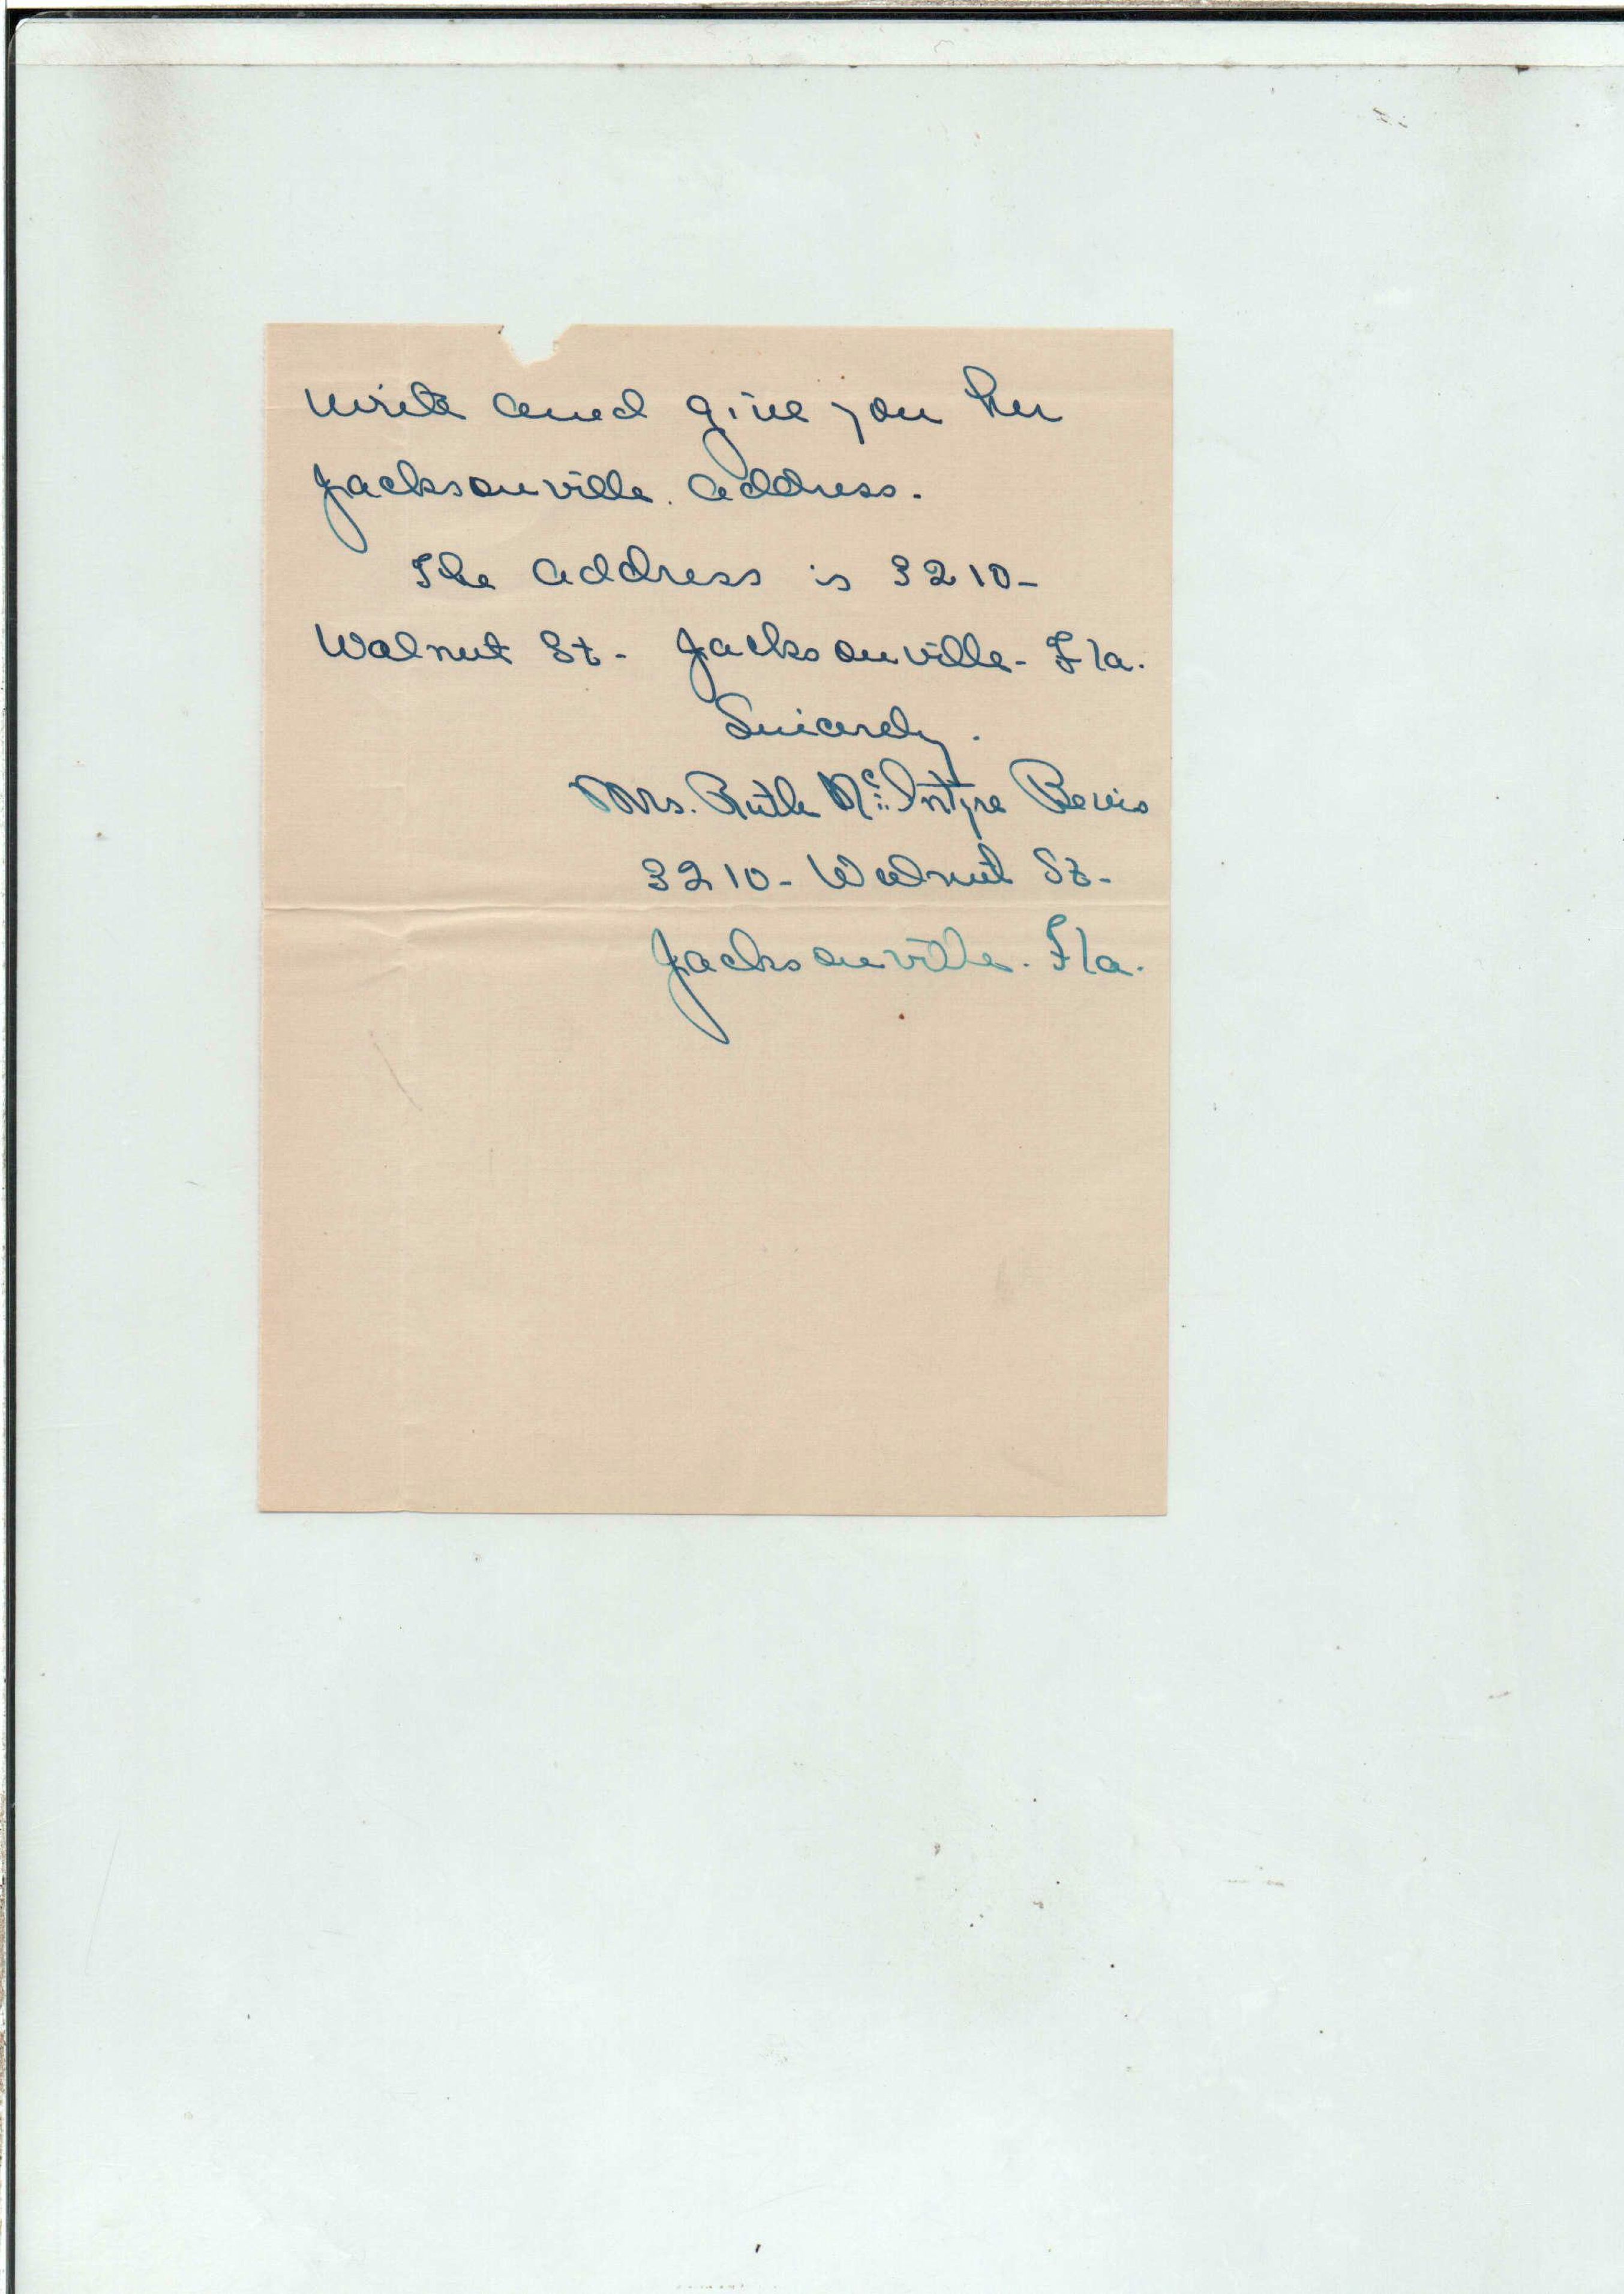 write and give you her
Jacksonville. address.
The address is 3210-
Walnut St- Jacksonville- Fla.
Sincerely.
Mrs. Ruth McIntyre Bevis
3210- Walnut St-
Jacksonville. Fla.